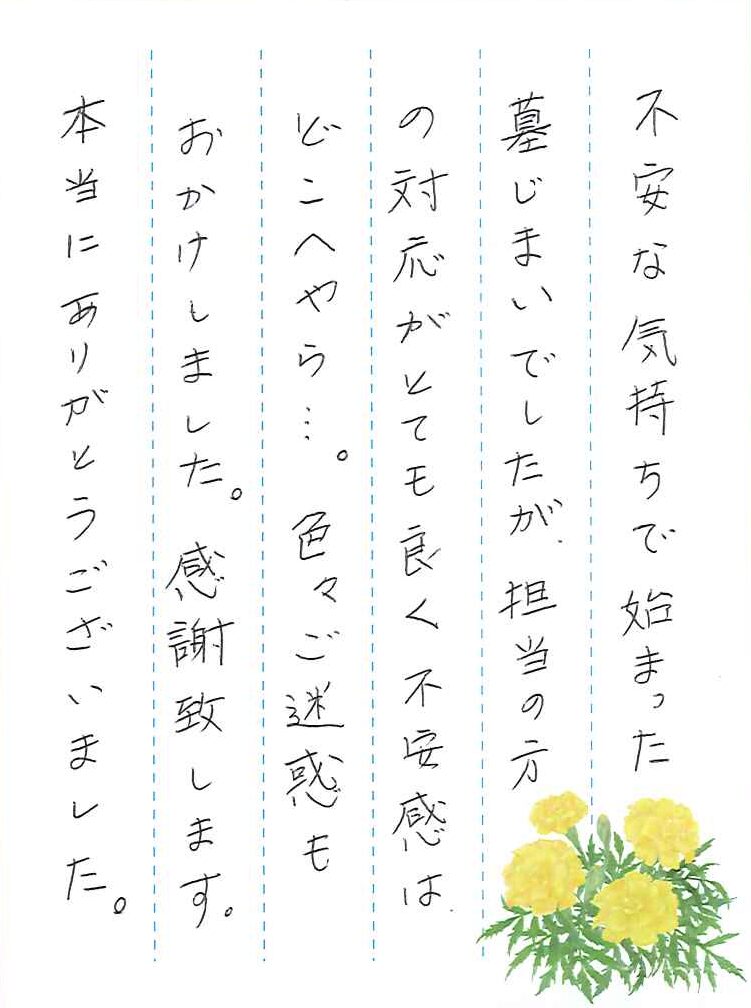 不安な気持ちで始まった
墓じまいでしたが、担当の方
の対応がとても良く不安感は、
どこへやら…。色々ご迷惑も
おかけしました。感謝致します。
本当にありがとうございました。